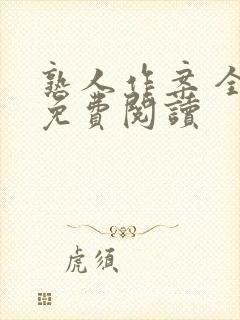 熟人作案全
免費閱讀
虎須